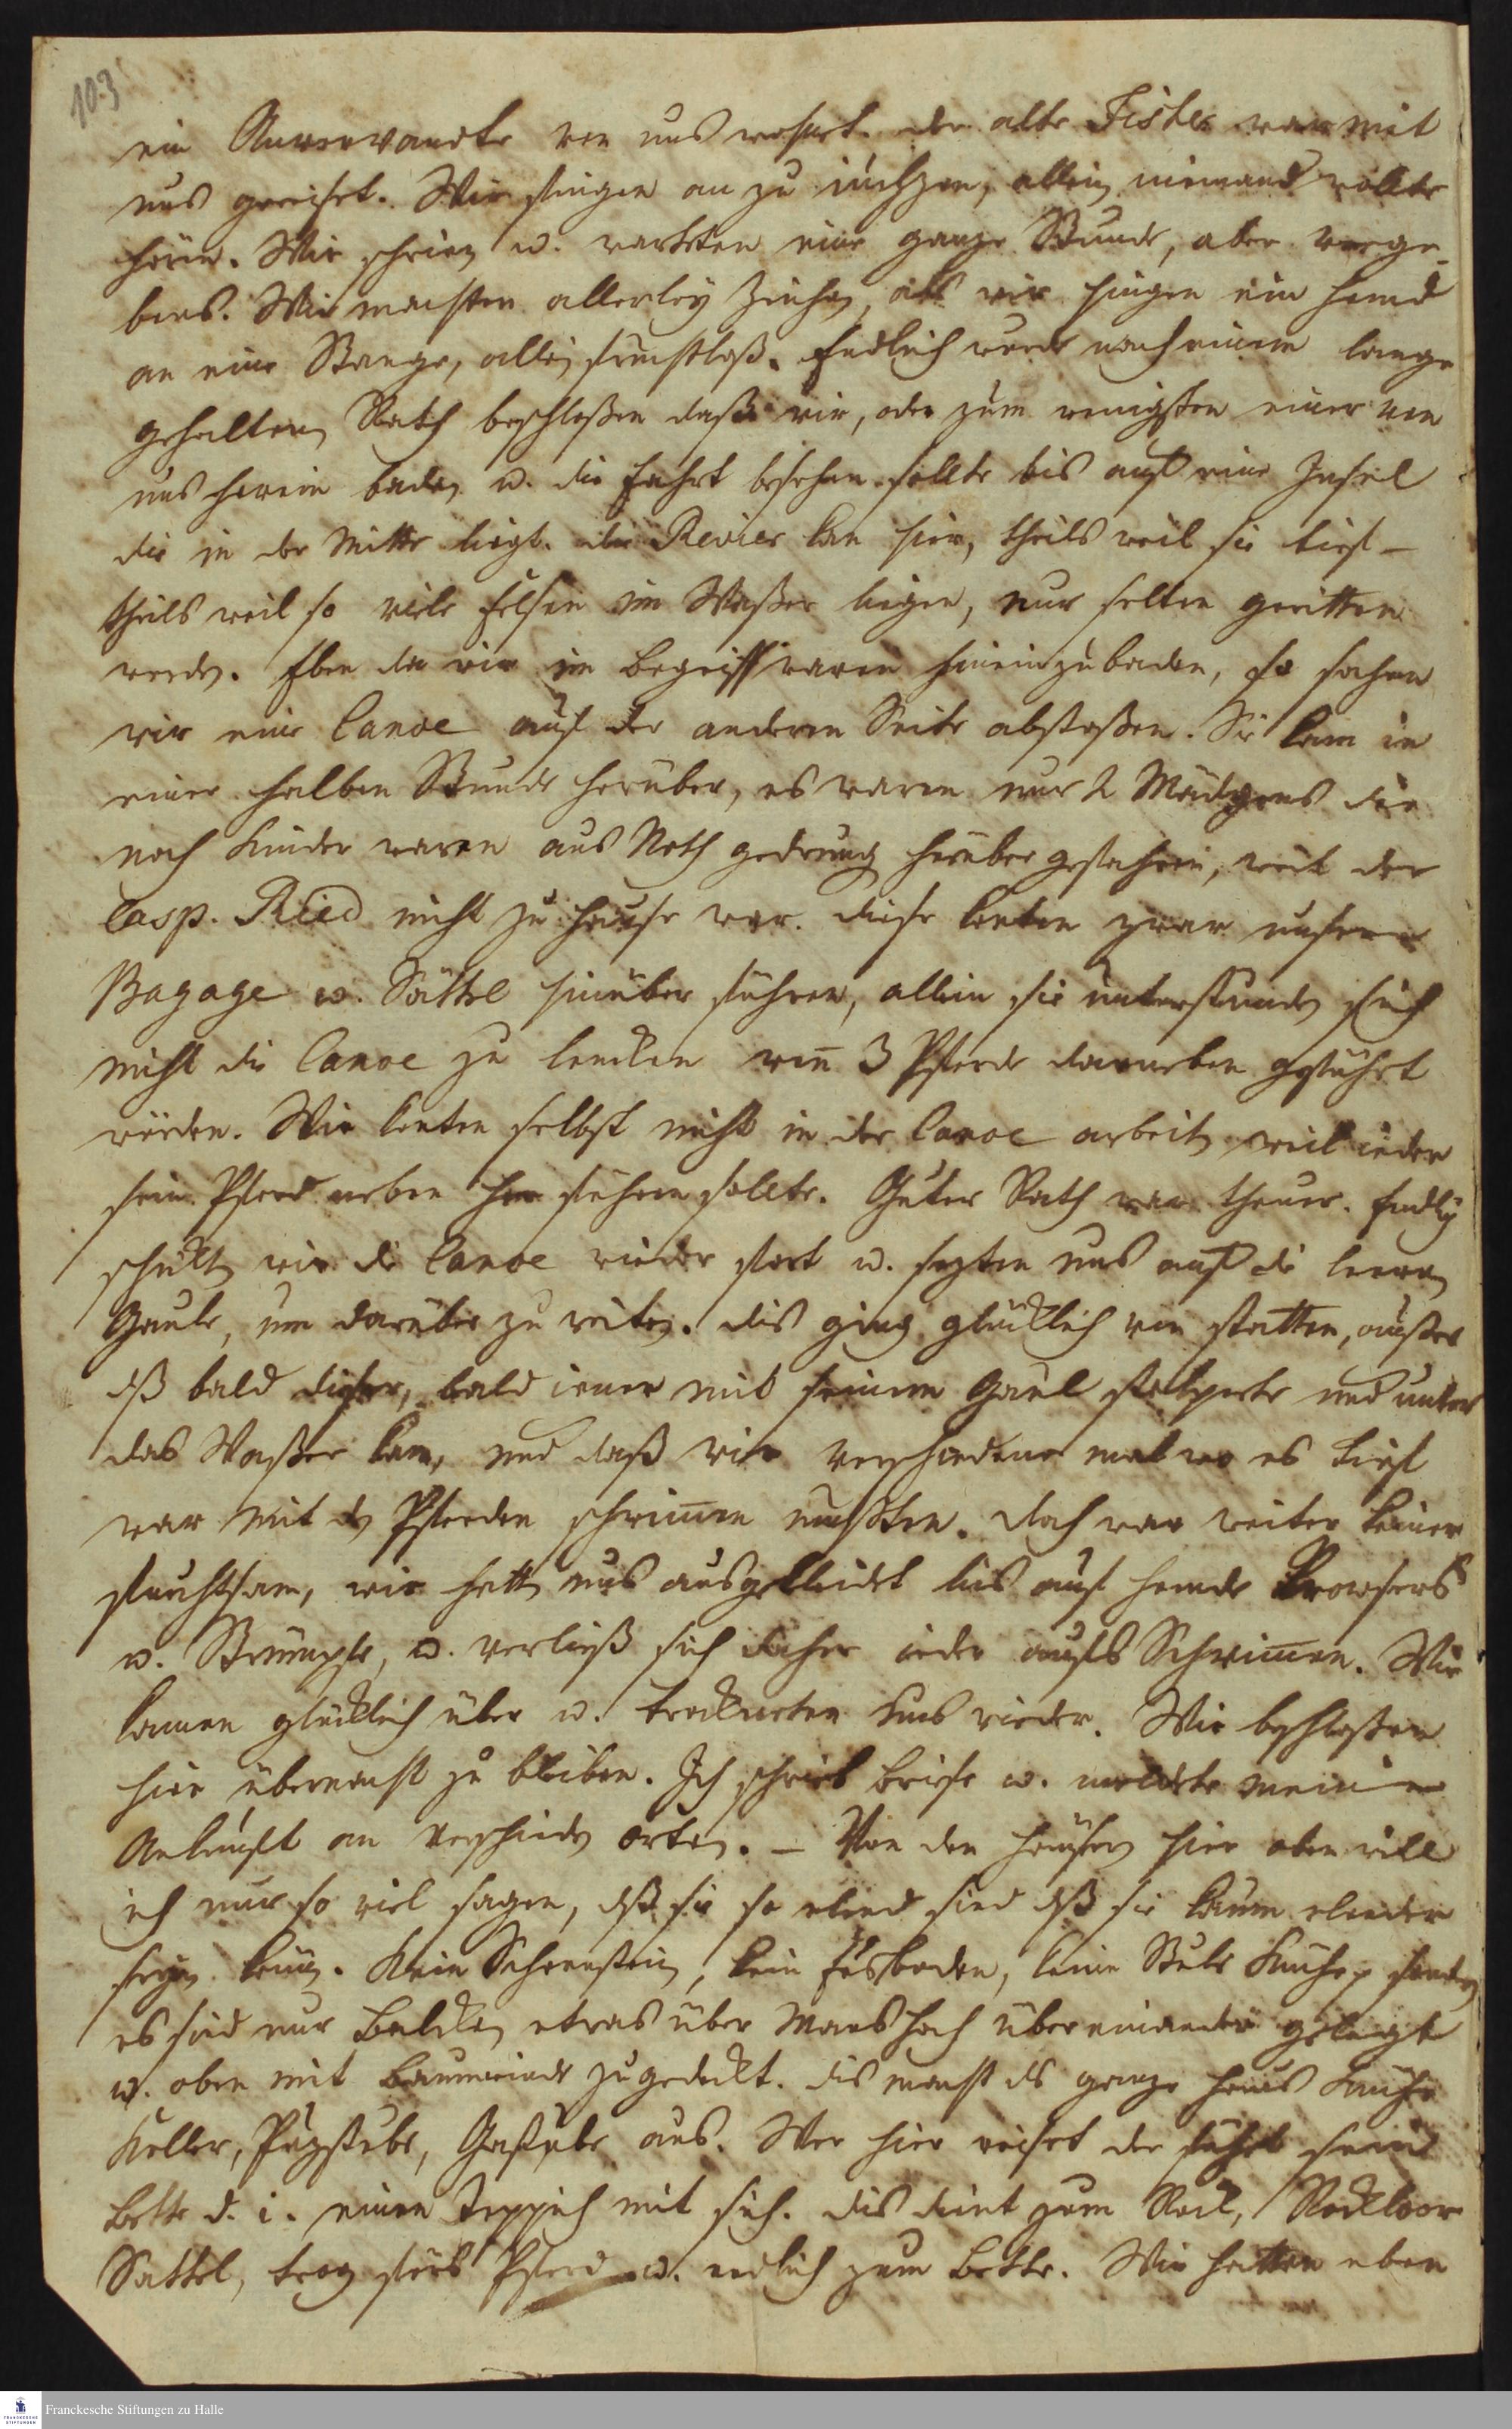 103
ein Anverwandte von uns wohnt. der alte Fisher war mit
uns gereiset. Wir fingen an zu jauchzen, allein niemand wollte
hören. Wir schrien u. warteten eine ganze Stunde, aber verge-
bens. Wir machten allerley Zeichen, als wir hingen ein Hemd
an eine Stange, allein fruchtloß. Endlich wurde nach einem lange
gehaltenen Rath beschloßen daß wir, oder zum wenigsten einer von
uns herein baden u. die Fahrt besehen sollte bis auf eine Insel
die in der Mitte liegt. die Revier kan hier, theils weil sie tief –
theils weil so viele Felsen im Waßer liegen, nur selten geritten
werden. Eben da wir im Begriff waren hineinzubaden, so sahen
wir eine Canoe auf der anderen Seite abstoßen. Sie kam in
einer halben Stunde herüber, es waren nur 2 Mädgens die
noch Kinder waren aus Noth gedrung herüber gefahren, weil der
Casp. Ried nicht zu Hause war. diese konten zwar unsere
Bagage u. Sättel hinüber führen, allein sie unterstunden sich
nicht die Canoe zu lencken wen 3 Pferde darneben geführt
würden. Wir konten selbst nicht in der Canoe arbeiten weil jeder
sein Pferd neben her führen sollte. Guter Rath war theuer. Endlich
schickten wir die Canoe wieder fort u. sezten uns auf die leeren
Gaule, um darüber zu reiten. dis ging glücklich von statten, außer
dß bald dieser, bald jener mit seinem Gaul stolperte und unter
das Waßer kam, und daß wir verschiedene mal wo es tief
war mit den Pferden schwimen mußten. doch war weiter keiner
furchtsam, wir hatten uns ausgekleidet bis auf Hemde Trowsers
u. Strümpfe, u. verließ sich daher jeder aufs Schwimen. Wir
kamen glücklich über u. trockneten uns wieder. Wir beschloßen
hier übernacht zu bleiben. Ich schrieb Briefe u. meldete meine
Ankunft an verschieden Orten. – Von den Häusern hier oben will
ich nur so viel sagen, dß sie so elend sind dß sie kaum elender
seyn können. Kein Schornstein, kein Fusboden, keine Stube Küche
es sind nur Balcken etwas über Mans hoch über einander gelegt
u. oben mit Baumrinde zugedeckt. dis macht ds ganze Haus Küche
Keller, Putzstube, Gaststube aus. Wer hier reiset der führt sein
Bette d. i. einen Teppich mit sich. dis dient zum Rock, Rockloor
Sattel, trog fürs Pferd u. endlich zum Bette. Wir hatten eben
Franckesche Stiftungen zu Halle